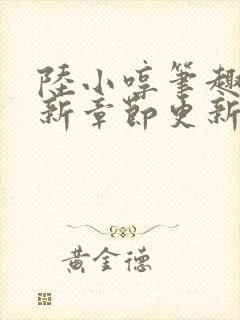 陸小啍筆趣
新章節更新
黃金德